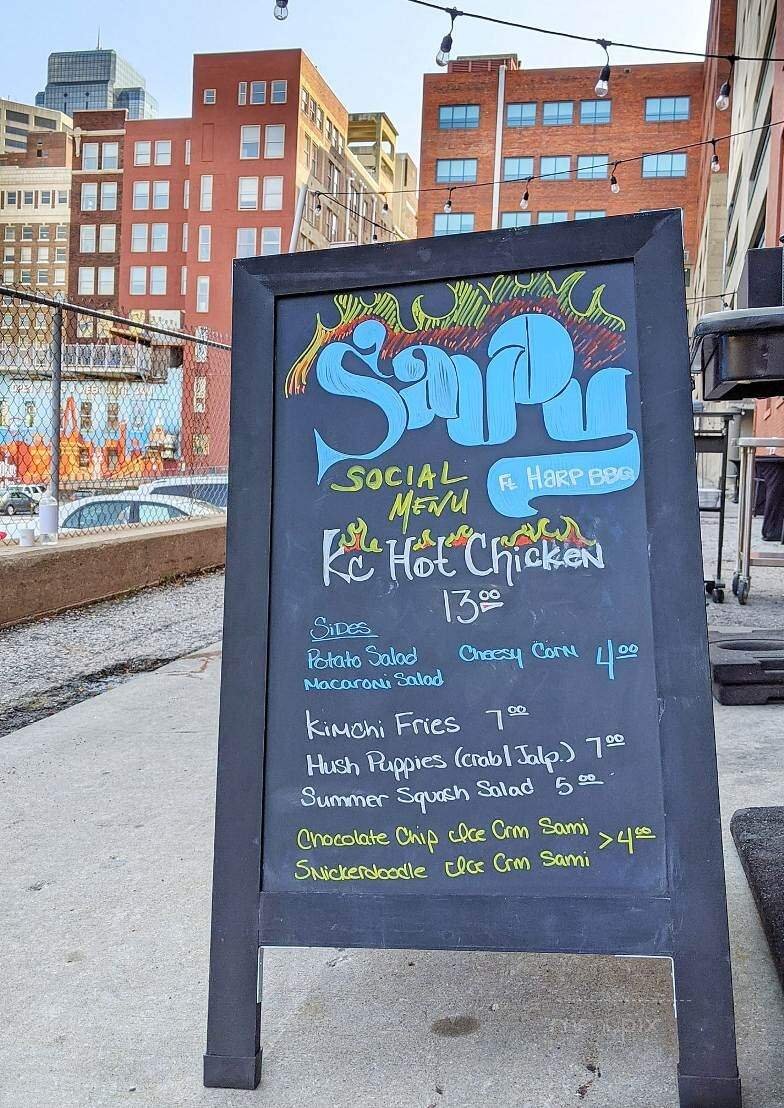 Savoy
SOCIAL
MENU
Ft. HARP BBQ
KC Hot Chicken
13.00
Sides
Potato Salad Cheesy Corn 4.00
Macaroni Salad
Kimchi Fries 7.00
Hush Puppies (crab/Jalp.) 7.00
Summer Squash Salad 5.00
Chocolate Chip Ice Crm Sami > 4.00
Snickerdoodle Ice Crm Sami
menupix